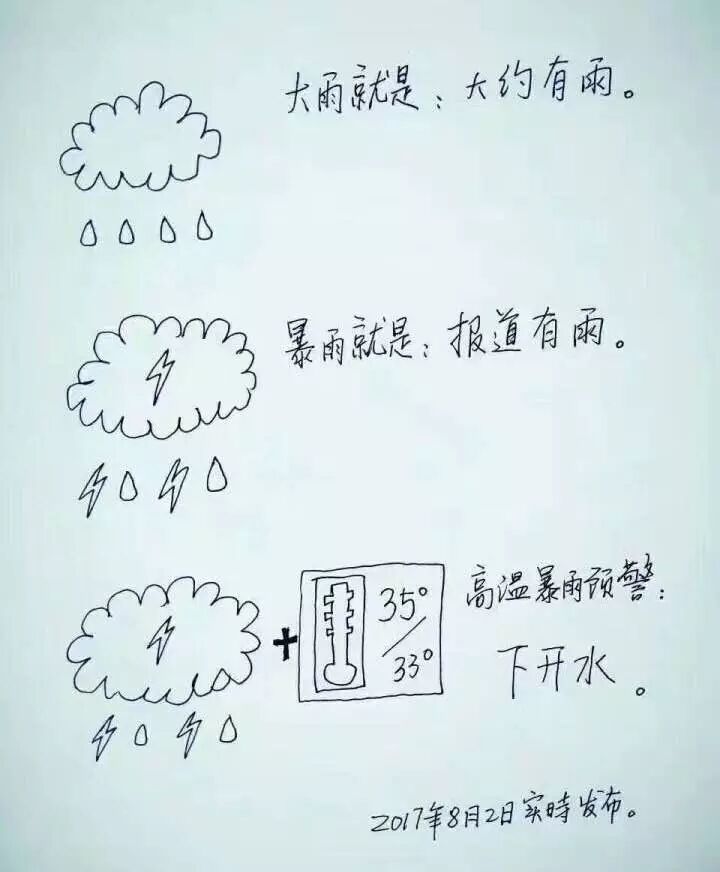 大雨就是：大约有雨。
暴雨就是：报道有雨。
35°
33°
高温暴雨预警：
下开水。
2017年8月2日实時发布。